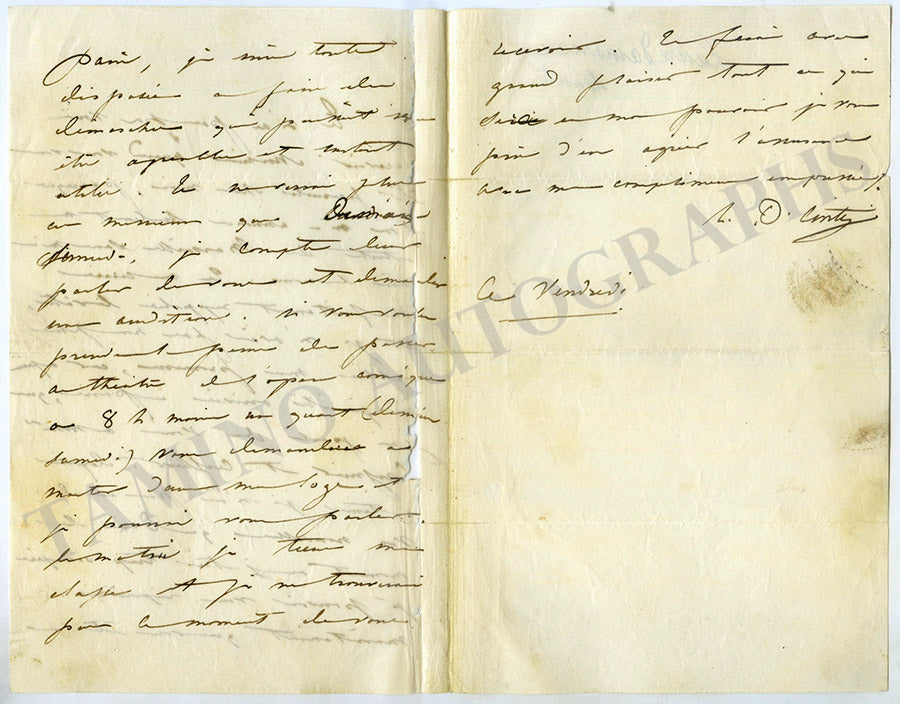 Paris, je suis toute
disposée a faire des
démarches qui pourrait vous
être agréable et surtout
utile. Je ne verrai plus
ces messieurs que
samedi, je compte leur
parler de vous et demander
une audition. si vous voulez
prendre la peine de passer
au théâtre de l'opera comique
a 8 h moins un quart (demain
samedi) vous demanderez a
monter dans ma loge et
je pourrai vous parler.
le matin je tiens ma
classe et je ne trouverai
pas le moment de vous
recevoir. Je ferai avec
grand plaisir tout ce qui
sera en mon pouvoir je vous
prie d'en agréer l'assurance
avec mes compliments empressés.
D. Conti
Ce Vendredi
TAMINO AUTOGRAPHS